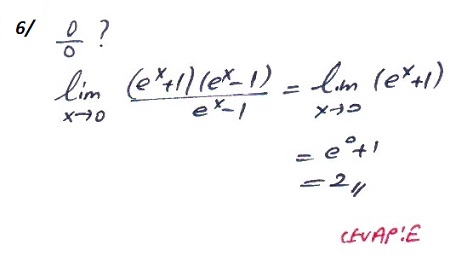 6/ 0/0 ?
lim x→0 (eˣ+1)(eˣ-1) / eˣ-1 = lim x→0 (eˣ+1)
= e⁰+1
= 2//
CEVAP:E